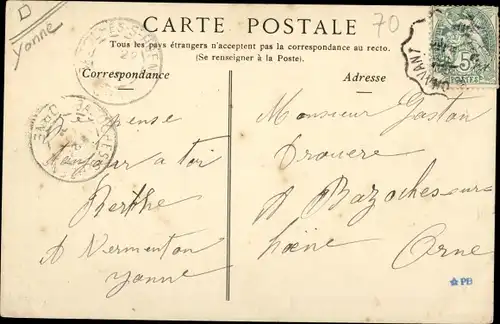 D
Yonne
70
CARTE POSTALE
Tous les pays étrangers n'acceptent pas la correspondance au recto.
(Se renseigner à la Poste).
Correspondance
Adresse
5
POSTES
pense
Bonjour a toi
Berthe
A Vermenton
Yonne
Monsieur Gaston
Drouere
A Bazoches-sur-
hoëne
Orne
PB